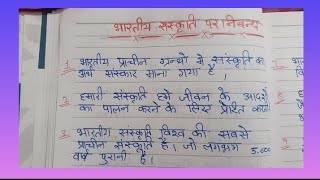 भारतीय संस्कृति पर निबन्ध
1 भारतीय प्राचीन ग्रन्थो में संस्कृति का
अर्थ संस्कार माना गया है ।
2 हमारी संस्कृति हमें जीवन के आदर्शो
का पालन करने के लिए प्रेरित करती
3 भारतीय संस्कृति विश्व की सबसे
प्राचीन संस्कृति है। जो लगभग 5,000
वर्ष पुरानी है।